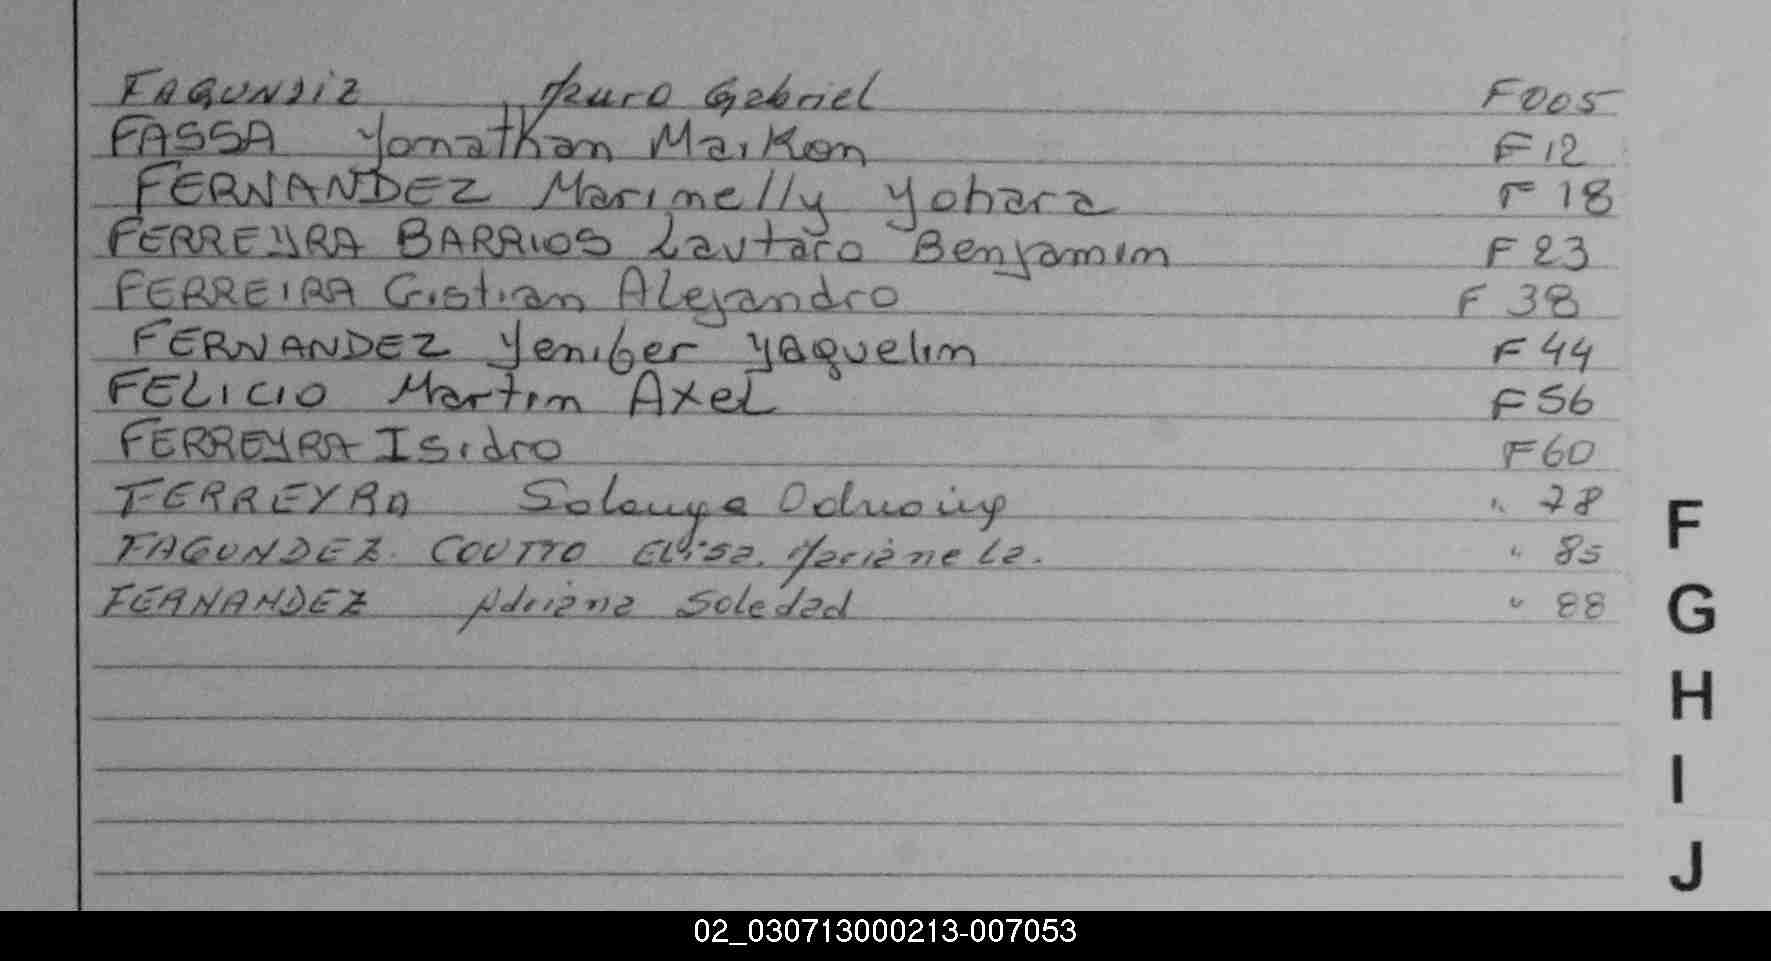 FAGUNDIZ Mauro Gabriel F005
FASSA Yonathan Maikon F12
FERNANDEZ Marinelly Yohara F 18
FERREYRA BARRIOS Lautaro Benjamin F 23
FERREIRA Cristian Alejandro F 38
FERNANDEZ Yenifer Yaquelin F 44
FELICIO Martin Axel F56
FERREYRA Isidro F60
FERREYRA Solange " 78
FAGUNDEZ. COUTTO Elisa. Marianela. " 85
FERNANDEZ Adriana Soledad " 88
F
G
H
I
J
02_030713000213-007053